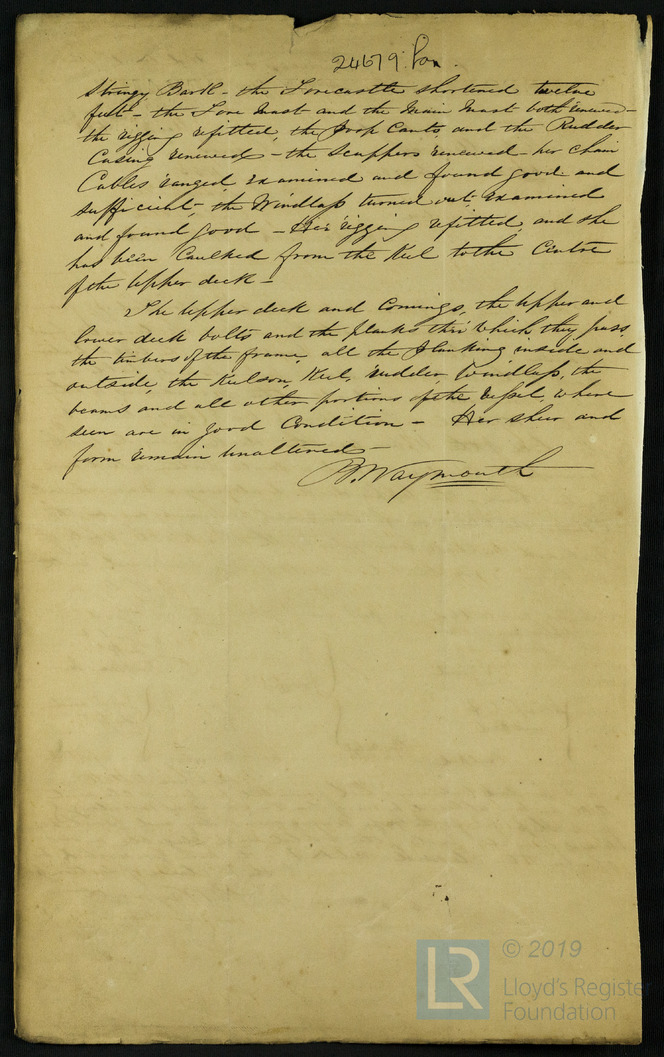 24679 Lon.
Stringy Bark - the Forecastle shortened twelve
feet - the Fore Mast and the Main Mast both renewed -
the rigging refitted, the Prop Cants, and the Rudder
Casing renewed - the Scuppers renewed - her chain
Cables ranged, examined and found good and
sufficient, the Windlass turned out, examined
and found good - Her rigging refitted, and she
has been Caulked from the Keel to the Centre
of the upper deck -
The upper deck and Comings, the upper and
lower deck bolts and the planks thro' which they pass,
the timbers of the frame, all the planking inside and
outside, the Keelson, Keel, rudder, windlass, the
beams and all other portions of the Vessel, where
seen are in good Condition - Her sheer and
form remain unaltered -
B. Waymouth
LR
© 2019
Lloyd's Register
Foundation